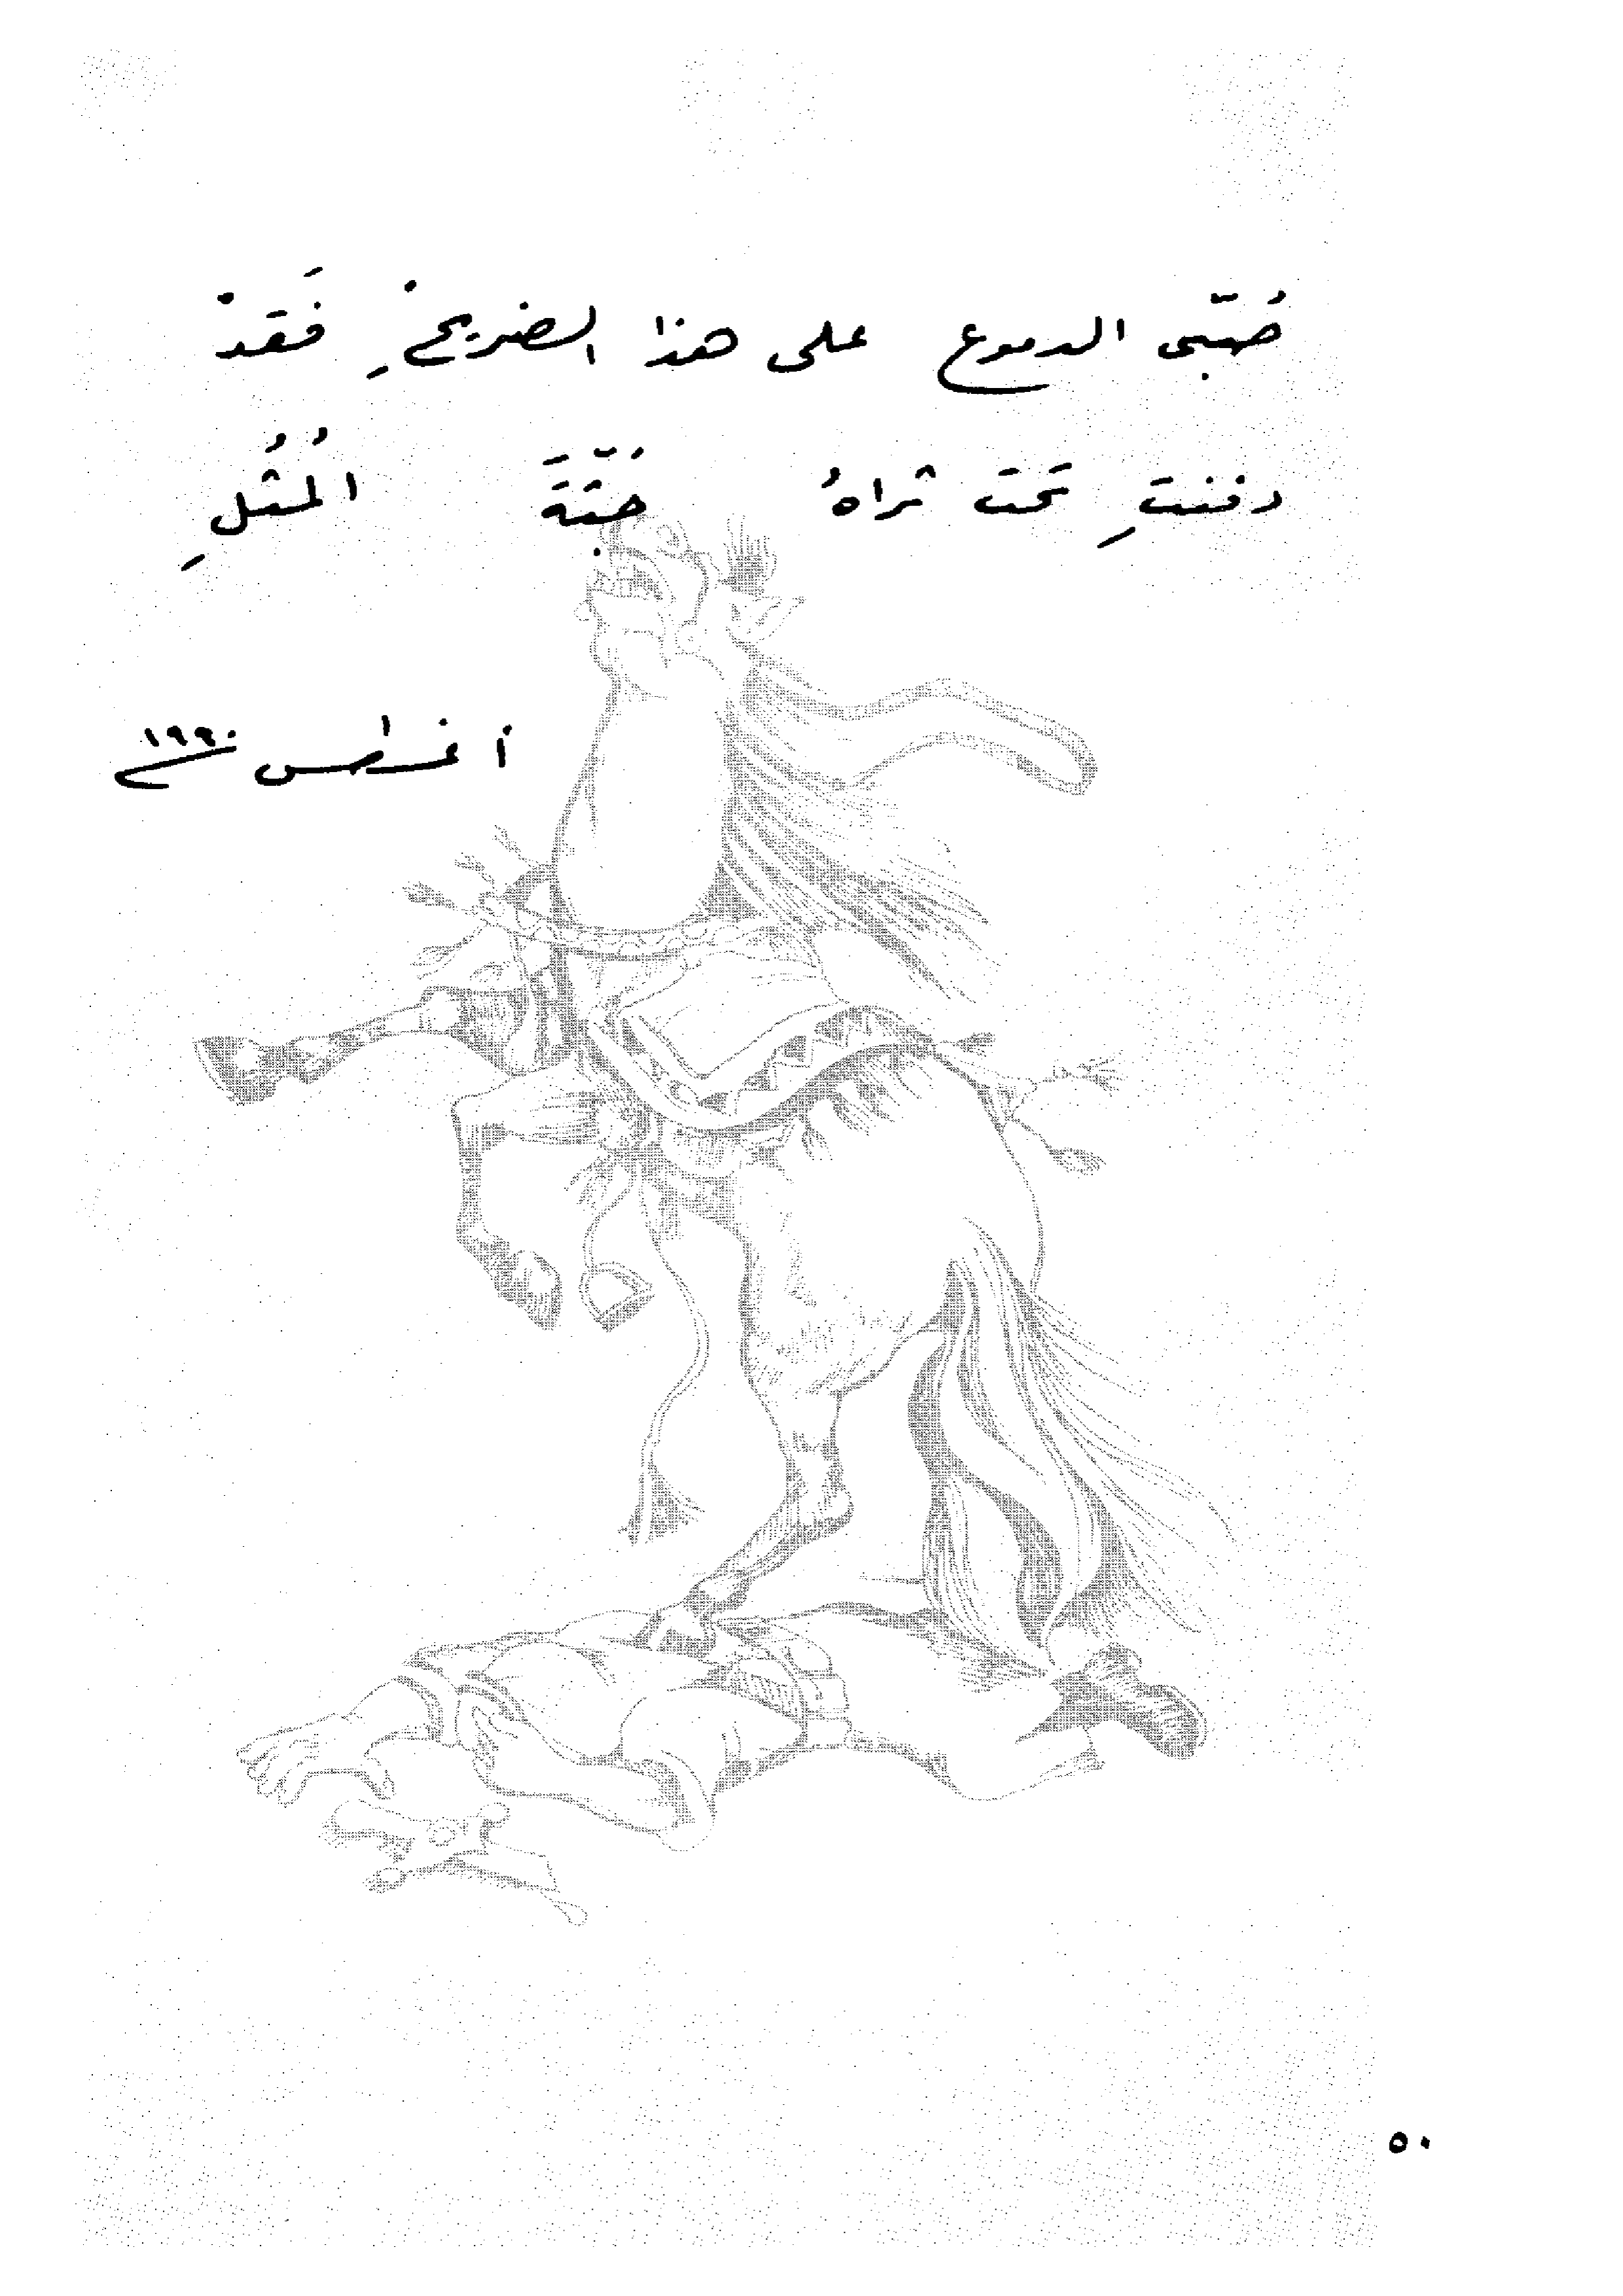 صُبّي الدموع على هذا الضريحِ فَقدْ
دفنتِ تحت ثراهُ جُثّةَ المُثُلِ
أغسطس ١٩٩٠
٥٠